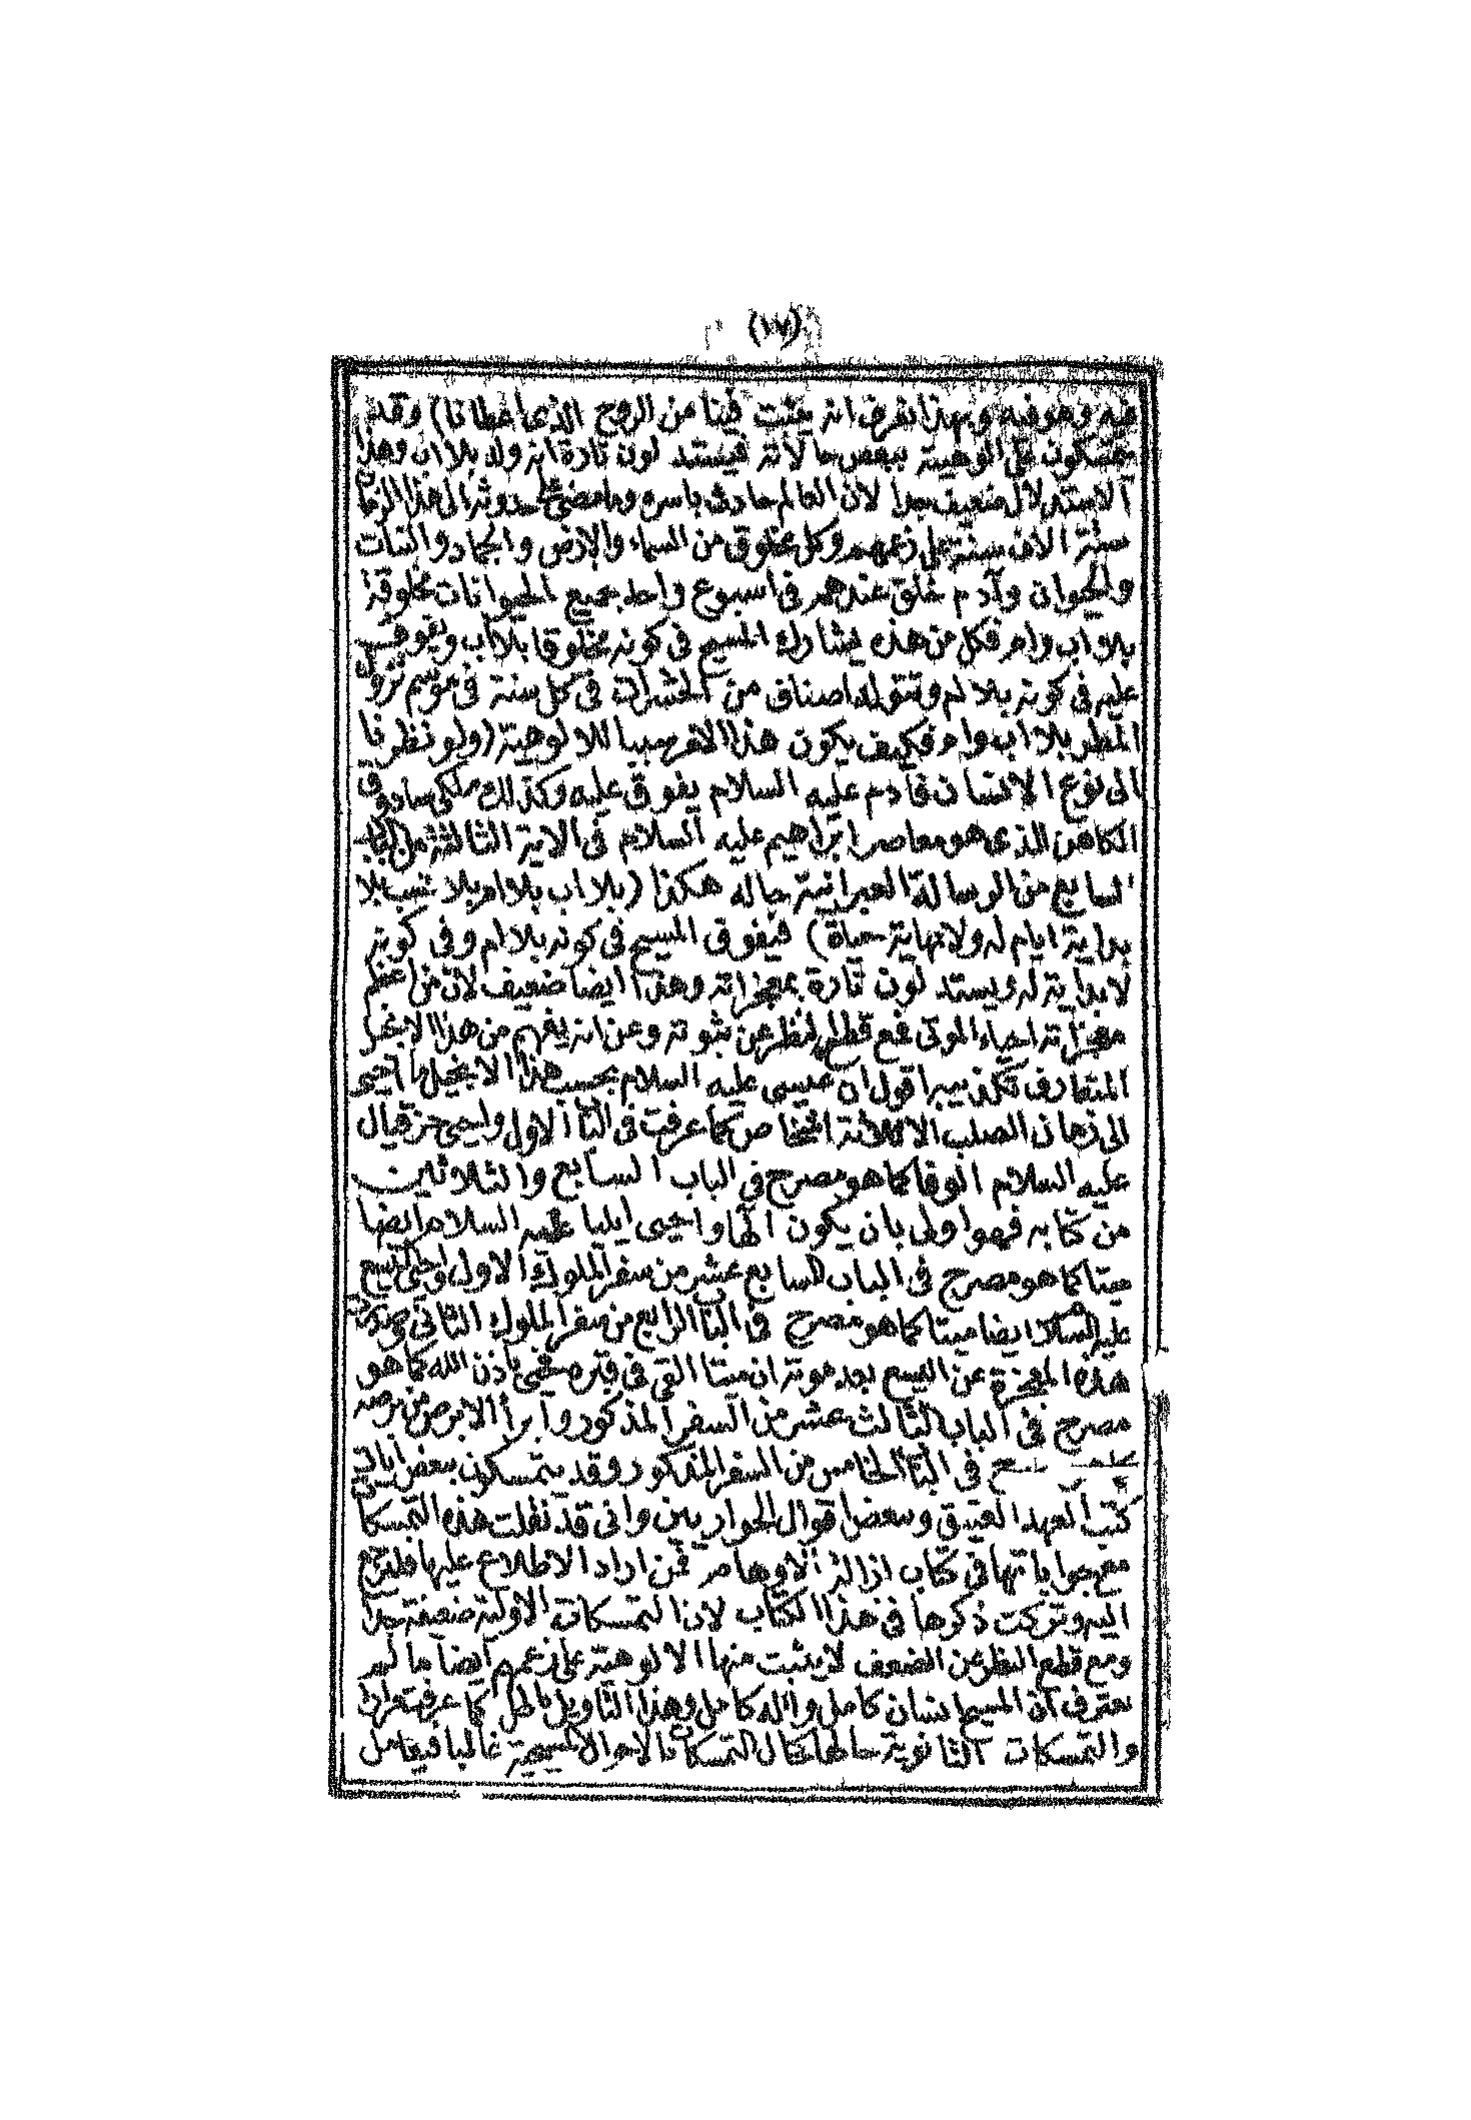 (١٧)
فيه وهو فيه وبهذا نعرف انه يثبت فينا من الروح الذي اعطانا) وقد
يتمسكون على الوهيته ببعض حالاته فيستدلون تارة انه ولد بلا اب وهذا
الاستدلال ضعيف جدا لان العالم حادث باسره وما مضى على حدوثه الى هذا الزمان
ستة الاف سنة على زعمهم وكل مخلوق من السماء والارض والجماد والنبات
والحيوان وآدم خلق عندهم في اسبوع واحد بجميع الحيوانات مخلوقة
بلا اب وام فكل من هذه يشارك المسيح في كونه مخلوقا بلا اب ويفوق
عليه في كونه بلا ام وتتولد اصناف من الحشرات في كل سنة في موسم نزول
المطر بلا اب وام فكيف يكون هذا الامر سببا للالوهية (ولو نظرنا
الى نوع الانسان فآدم عليه السلام يفوق عليه وكذلك ملكي صادوق
الكاهن الذي هو معاصر ابراهيم عليه السلام في الاية الثالثة من الباب
السابع من الرسالة العبرانية حاله هكذا (بلا اب بلا ام بلا نسب بلا
بداية ايام له ولا نهاية حياة) فيفوق المسيح في كونه بلا ام وفي كونه
لا بداية له ويستدلون تارة بمعجزاته وهذا ايضا ضعيف لان من اعظم
معجزاته احياء الموتى فمع قطع النظر عن ثبوته وعن انه يفهم من هذا الانجيل
المتعارف تكذيبه اقول ان عيسى عليه السلام بحسب هذا الانجيل ما احيى
الى زمان الصلب الا ثلاثة اشخاص كما عرفت في البا الاول واحيى حزقيال
عليه السلام الوفا كما هو مصرح في الباب السابع والثلاثين
من كتابه فهو اولى بان يكون الها واحيى ايليا عليه السلام ايضا
ميتا كما هو مصرح في الباب السابع عشر من سفر الملوك الاول واحيى اليسع
عليه السلام ايضا ميتا كما هو مصرح في الباب الرابع من سفر الملوك الثاني وصدرت
هذه المعجزة عن اليسع بعد موته ان ميتا القي في قبره فحيى باذن الله كما هو
مصرح في الباب الثالث عشر من السفر المذكور وابرأ الابرص من برصه
كما هو مصرح في الباب الخامس من السفر المذكور وقد يتمسكون ببعض ايات
كتب العهد العتيق وببعض اقوال الحواريين واني قد نقلت هذه التمسكات
مع جواباتها في كتاب ازالة الاوهام فمن اراد الاطلاع عليها فليرجع
اليه وتركت ذكرها في هذا الكتاب لان التمسكات الاولية ضعيفة جدا
ومع قطع النظر عن الضعف لا يثبت منها الالوهية على زعمهم ايضا ما لم
يعترف ان المسيح انسان كامل واله كامل وهذا التاويل باطل كما عرفت مرارا
والتمسكات الثانوية حالها كحال التمسكات بالاحوال المسيحية غالبا فيعامل